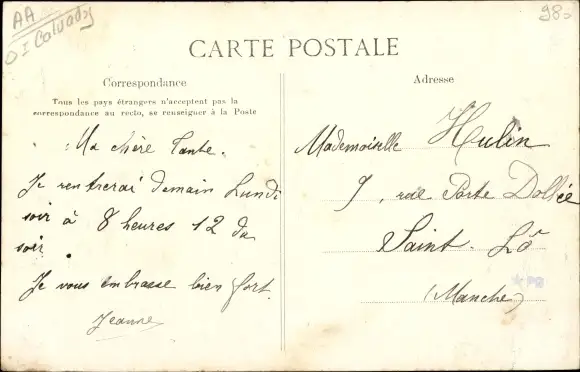 AA
OI Calvados
98
CARTE POSTALE
Correspondance
Tous les pays étrangers n'acceptent pas la
correspondance au recto, se renseigner à la Poste
Ma chère Tante.
Je rentrerai demain Lundi
soir à 8 heures 12 du
soir.
Je vous embrasse bien fort.
Jeanne
Adresse
Mademoiselle Hulin
9, rue Porte Dollée
Saint-Lô
(Manche)
PB